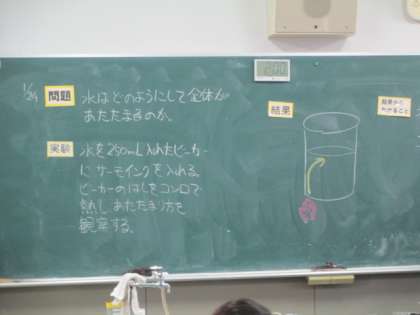 1/24
問題
水はどのようにして全体が
あたたまるのか。
実験
水を250mL入れたビーカー
にサーモインクを入れる。
ビーカーのはしをコンロで
熱し、あたたまり方を
観察する。
結果
結果から
わかること